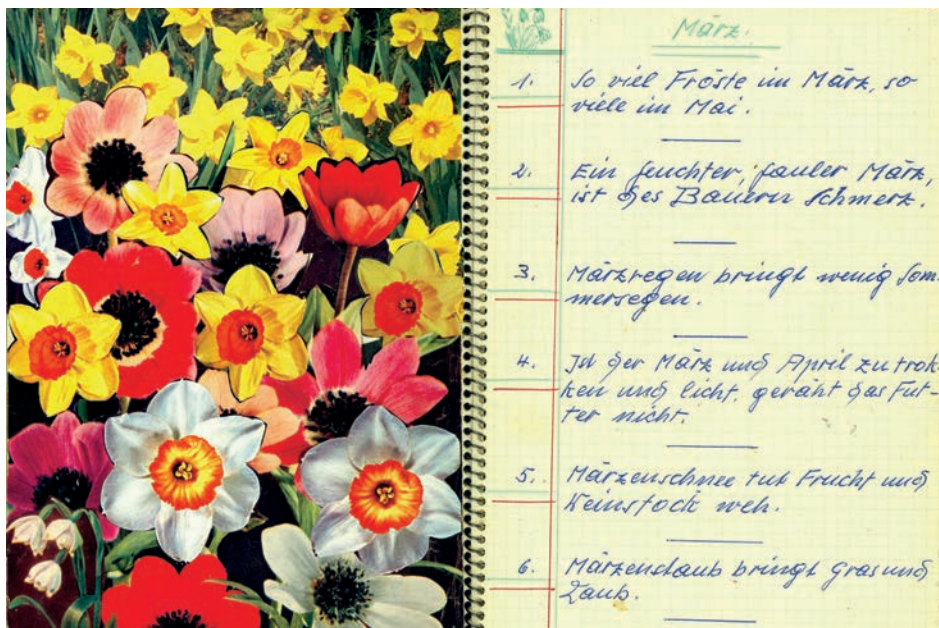 März.
1. So viel Fröste im März, so
viele im Mai.
2. Ein feuchter, fauler März,
ist des Bauern Schmerz.
3. Märzregen bringt wenig Som-
mersegen.
4. Ist der März und April zu trok-
ken und licht, geräht das Fut-
ter nicht.
5. Märzenschnee tut Frucht und
Weinstock weh.
6. Märzenstaub bringt Gras und
Laub.